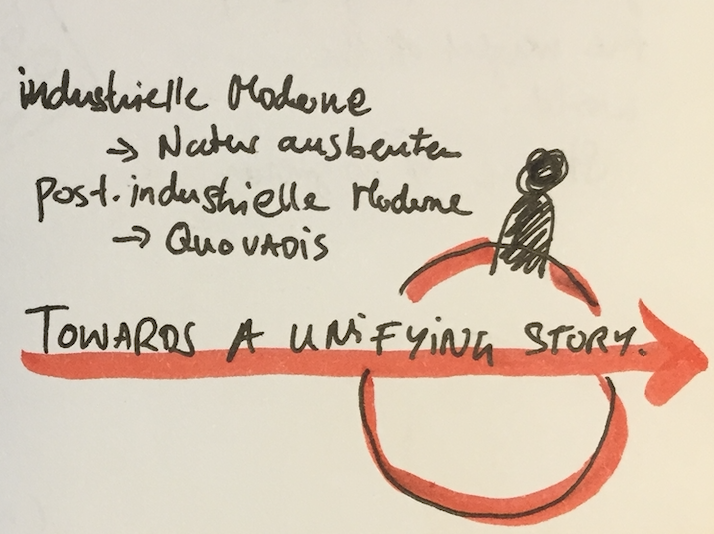 industrielle Moderne
→ Natur ausbeuten
post.industrielle Moderne
→ QUO VADIS
TOWARDS A UNIFYING STORY.